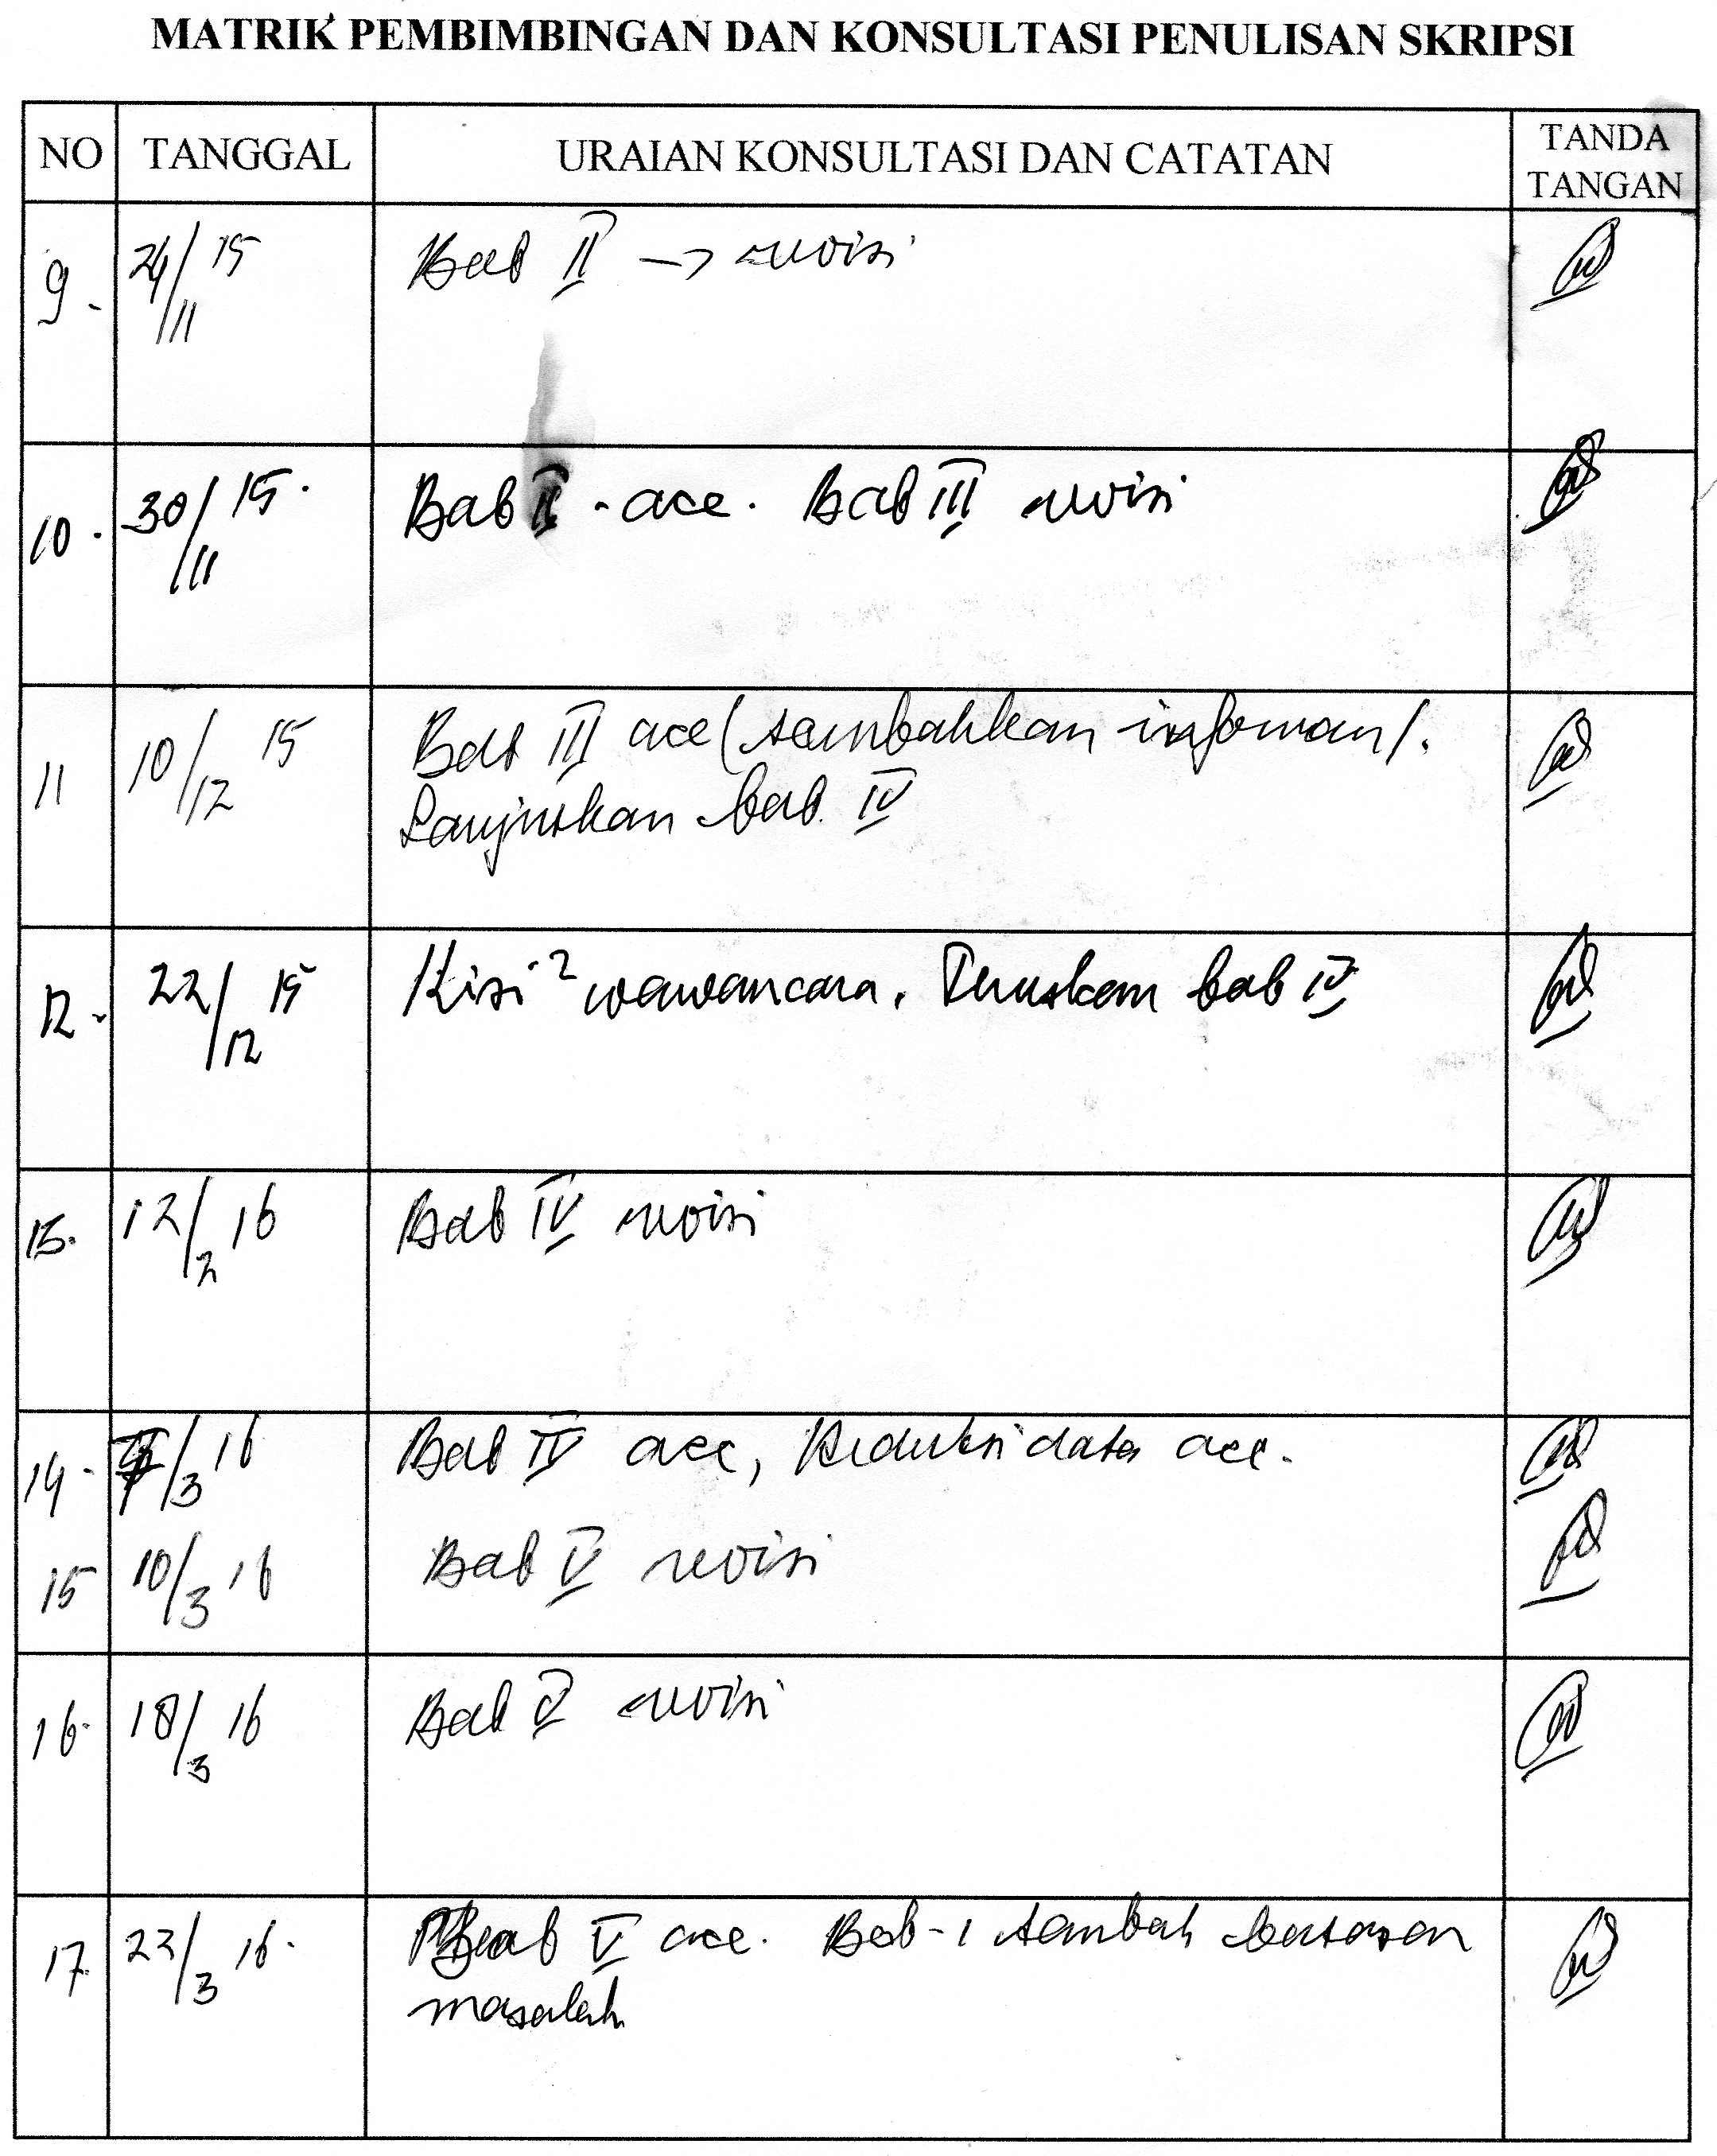 MATRIK PEMBIMBINGAN DAN KONSULTASI PENULISAN SKRIPSI
NO TANGGAL URAIAN KONSULTASI DAN CATATAN TANDA TANGAN
9. 24/11 15 Bab II → revisi
10. 30/11 15. Bab II - acc. Bab III revisi
11 10/12 15 Bab III acc (tambahkan informan).
Lanjutkan bab IV
12. 22/12 15 Kisi² wawancara. Teruskan bab IV
13. 12/2 16 Bab IV revisi
14. /3 16 Bab IV acc, Reduksi data acc.
15 10/3 16 Bab V revisi
16. 18/3 16 Bab V revisi
17. 22/3 16. Bab V acc. Bab-1 tambah batasan
masalah